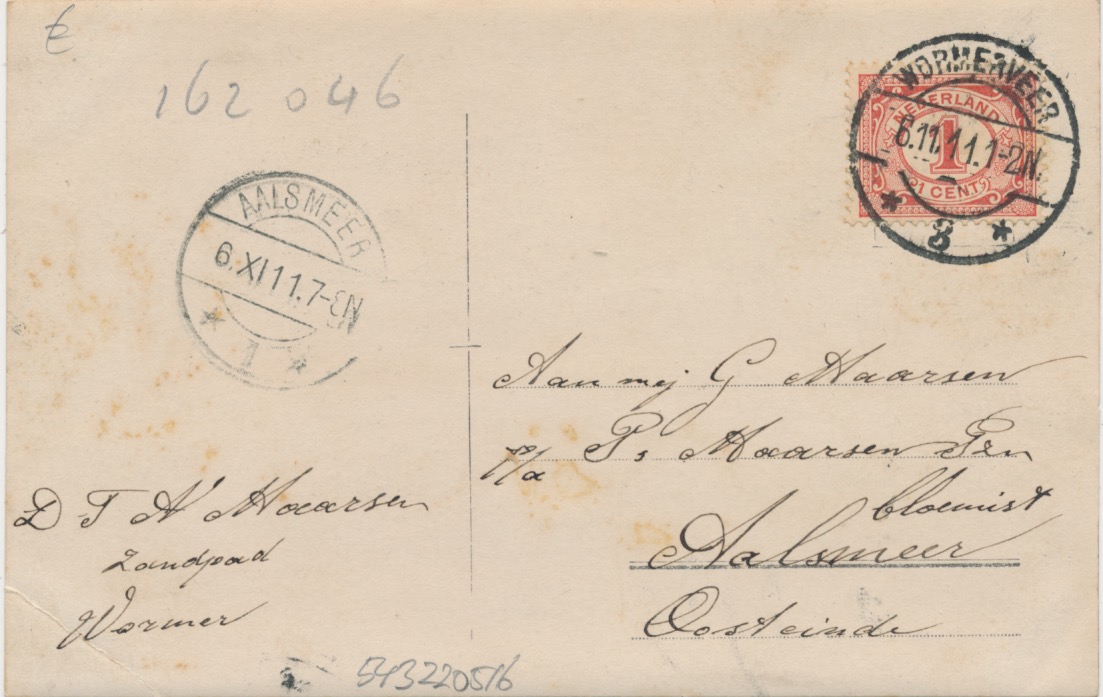 162 046
WORMERVEER
6.11.11.1-2N.
8
NEDERLAND
1
1 CENT
AALSMEER
6.XI 11.7-8N
1
Aan mej G Maarsen
p/a P. Maarsen Pzn
bloemist
Aalsmeer
Oosteinde
D T N Maarsen
Zandpad
Wormer
543220516